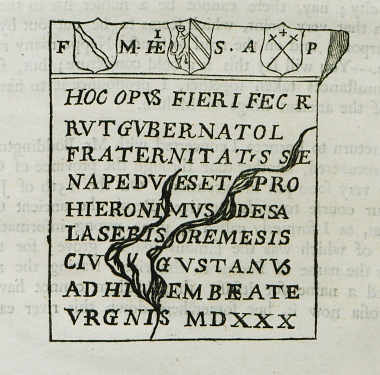 F M·HE S·A P
HOC OPVS FIERI FEC R
RVTGVBERNATOL
FRATERNITAT·S SE
NAPEDV ESET PRO
HIERONIMVS DESA
LASERIS OREMESIS
CIV GVSTANVS
AD HI EMBRATE
VRGNIS MDXXX